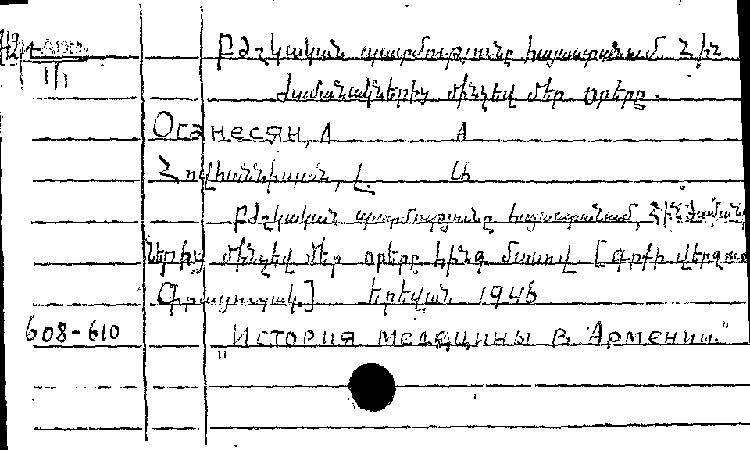 Բժշկական պատմությունը Հայաստանում Հին
ժամանակներից մինչև մեր օրերը.
Оганесян, Л А
Հովհաննիսյան, Լ. Ա.
Բժշկական պատմությունը Հայաստանում, Հին ժամանակ
ներից մինչև մեր օրերը հինգ մասով [Գրքի վերջում
Երևան 1946
608-610
"История медицины в Армении."